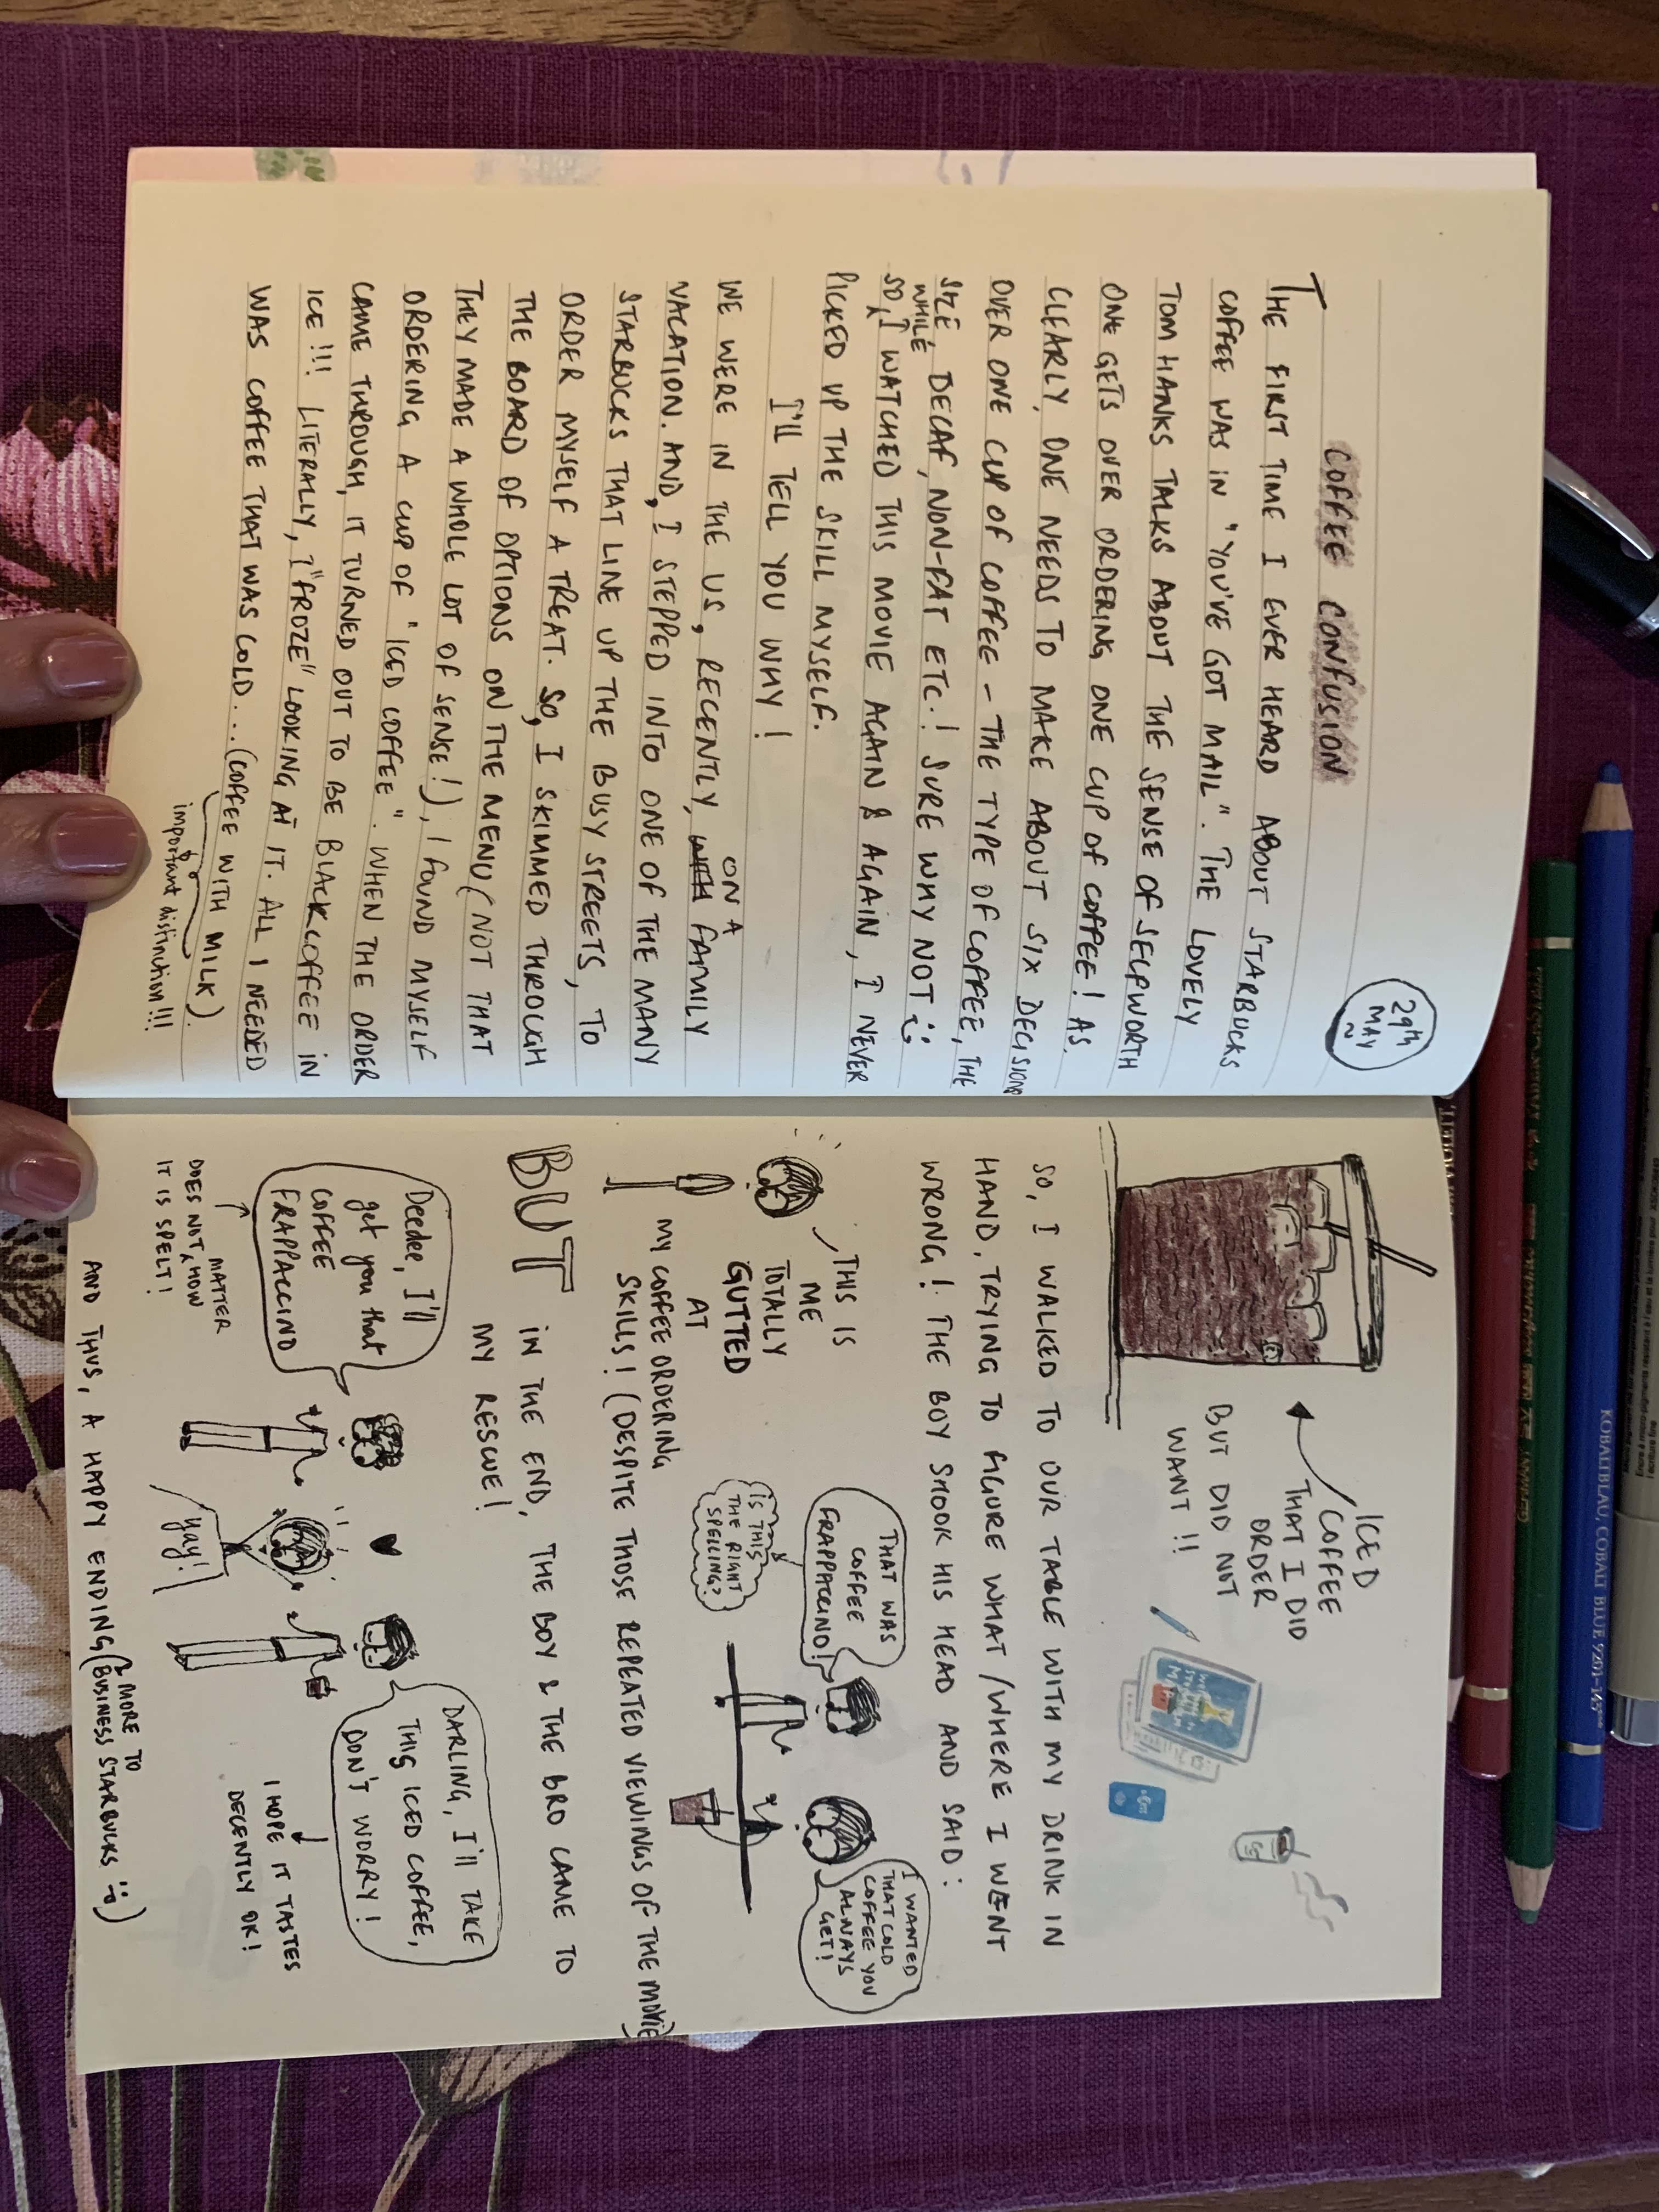 29th
MAY
COFFEE CONFUSION
THE FIRST TIME I EVER HEARD ABOUT STARBUCKS
COFFEE WAS IN "YOU'VE GOT MAIL". THE LOVELY
TOM HANKS TALKS ABOUT THE SENSE OF SELFWORTH
ONE GETS OVER ORDERING ONE CUP OF COFFEE! AS
CLEARLY, ONE NEEDS TO MAKE ABOUT SIX DECISIONS
OVER ONE CUP OF COFFEE - THE TYPE OF COFFEE, THE
SIZE, DECAF, NON-FAT ETC.! SURE WHY NOT :)
SO, WHILE I WATCHED THIS MOVIE AGAIN & AGAIN, I NEVER
PICKED UP THE SKILL MYSELF.
I'll TELL YOU WHY!
WE WERE IN THE US, RECENTLY, ON A FAMILY
VACATION. AND, I STEPPED INTO ONE OF THE MANY
STARBUCKS THAT LINE UP THE BUSY STREETS, TO
ORDER MYSELF A TREAT. SO, I SKIMMED THROUGH
THE BOARD OF OPTIONS ON THE MENU (NOT THAT
THEY MADE A WHOLE LOT OF SENSE!), I FOUND MYSELF
ORDERING A CUP OF "ICED COFFEE". WHEN THE ORDER
CAME THROUGH, IT TURNED OUT TO BE BLACK COFFEE IN
ICE!!! LITERALLY, I "FROZE" LOOKING AT IT. ALL I NEEDED
WAS COFFEE THAT WAS COLD... (COFFEE WITH MILK).
important distinction!!!
ICED
COFFEE
THAT I DID
ORDER
BUT DID NOT
WANT!!
SO, I WALKED TO OUR TABLE WITH MY DRINK IN
HAND, TRYING TO FIGURE WHAT/WHERE I WENT
WRONG! THE BOY SHOOK HIS HEAD AND SAID:
THIS IS
ME
TOTALLY
GUTTED
AT
MY COFFEE ORDERING
SKILLS! (DESPITE THOSE REPEATED VIEWINGS OF THE MOVIE)
THAT WAS
COFFEE
FRAPPACINO!
IS THIS
THE RIGHT
SPELLING?
I WANTED
THAT COLD
COFFEE YOU
ALWAYS
GET!
BUT IN THE END, THE BOY & THE BRO CAME TO
MY RESCUE!
Deedee, I'll
get you that
COFFEE
FRAPPACCINO
DOES NOT MATTER HOW
IT IS SPELT!
yay!
DARLING, I'll TAKE
THIS ICED COFFEE,
DON'T WORRY!
I HOPE IT TASTES
DECENTLY OK!
AND THUS, A HAPPY ENDING (& MORE TO BUSINESS STARBUCKS :))
KOBALTBLAU, COBALT BLUE 9201-143